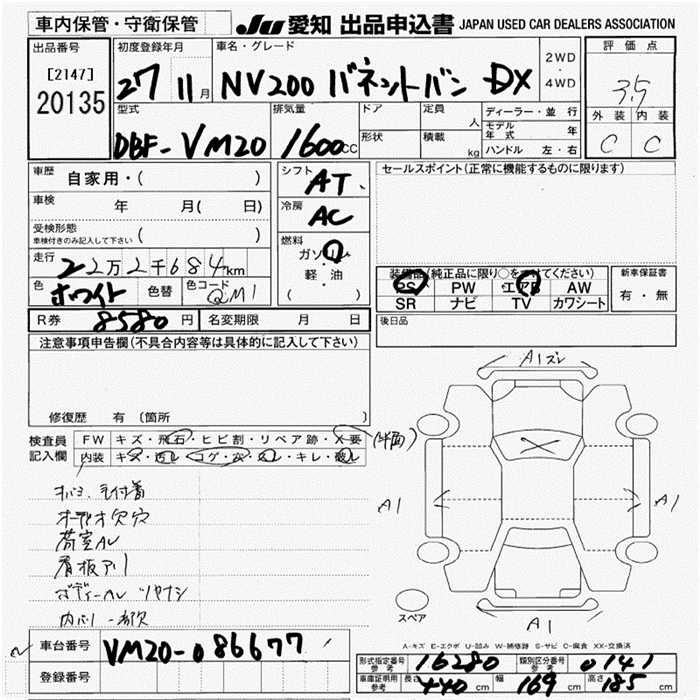 車内保管・守衛保管
JU 愛知 出品申込書 JAPAN USED CAR DEALERS ASSOCIATION
出品番号 初度登録年月 車名・グレード 2WD 4WD 評価点
[2147]
20135 27 11月 NV200 バネットバン DX 3.5
型式 排気量 ドア 定員 人 ディーラー・並行 外装 内装
DBF-VM20 1600cc 形状 積載 kg モデル年式 年 C C
ハンドル 左・右
車歴 自家用・( ) シフト AT セールスポイント(正常に機能するものに限ります)
車検 年 月( 日) 冷房 AC
受検形態 ( )
車検付きのみ記入して下さい
燃料 ガソリン
軽・油
( )
走行 22万2千684km
装備品(純正品に限り○をつけてください) 新車保証書
色 ホワイト 色替 色コード QM1
PS PW エアB AW 有・無
SR ナビ TV カワシート
R券 8580円 名変期限 月 日 後日品
注意事項申告欄(不具合内容等は具体的に記入して下さい)
A1ズレ
修復歴 有 (箇所 )
検査員記入欄 FW キズ・飛石・ヒビ割・リペア跡・X要
内装 キズ・汚レ・コゲ・穴・スレ・キレ・破レ
A1 A1
オーデオ欠穴
荷室AU
看板アリ
スペア
A1
A-キズ E-エクボ U-凹み W-補修跡 S-サビ C-腐食 XX-交換済
車台番号 VM20-086677
型式指定番号 参考 16280 類別区分番号 参考 0141
登録番号
車庫証明用 参考 長さ 440cm 幅 169cm 高さ 185cm